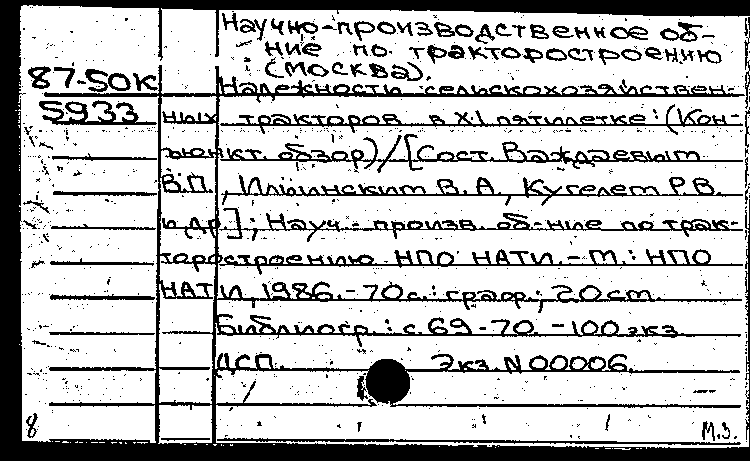 Научно-производственное об-
ние по тракторостроению
(Москва).
87-50К Надежность сельскохозяйствен-
5933 ных тракторов в XI пятилетке: (Кон-
юнкт. обзор)/[Сост. Важдаевым
В.П., Ильинским В.А., Кугелем Р.В.
и др.]; Науч.-произв. об-ние по трак-
торостроению НПО НАТИ.-М.: НПО
НАТИ, 1986.-70с.: граф.; 20 см.
Библиогр.: с. 69-70. -100 экз.
ДСП. Экз. N 00006.
8 М.З.